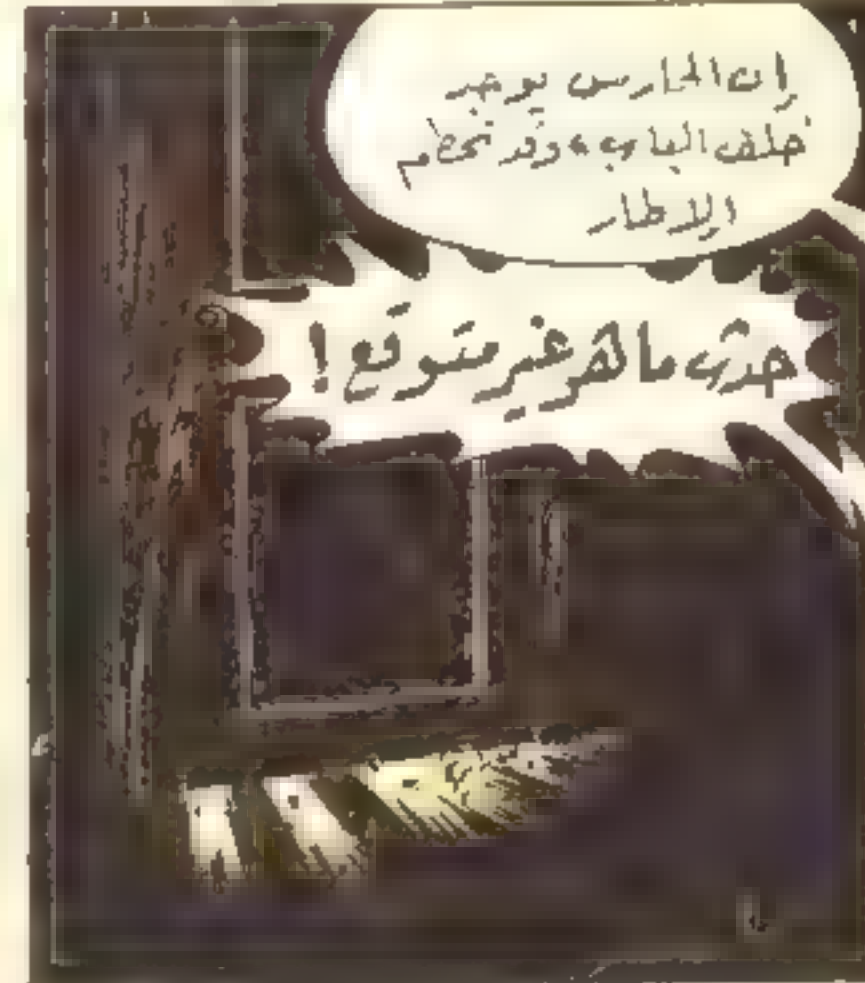 إن الحارس يوجد
خلف الباب، وقد تحطم
الإطار
حدث ما هو غير متوقع!